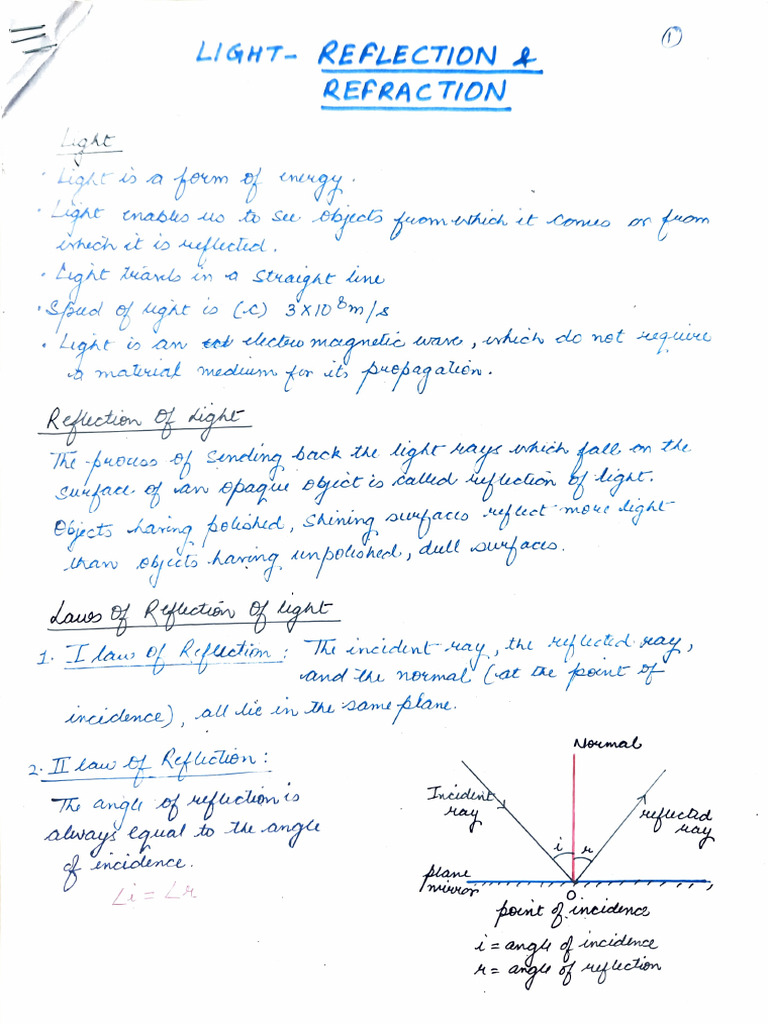 1
LIGHT- REFLECTION &
REFRACTION
Light
• Light is a form of energy.
• Light enables us to see objects from which it comes or from
which it is reflected.
• Light travels in a straight line
• Speed of light is (c) 3×10⁸m/s
• Light is an electro magnetic wave, which do not require
a material medium for its propagation.
Reflection of Light
The process of sending back the light rays which fall on the
surface of an opaque object is called reflection of light.
Objects having polished, shining surfaces reflect more light
than objects having unpolished, dull surfaces.
Laws of Reflection of light
1. I law of Reflection: The incident ray, the reflected ray,
and the normal (at the point of
incidence), all lie in the same plane.
2. II law of Reflection:
The angle of reflection is
always equal to the angle
of incidence.
∠i = ∠r
Normal
Incident
ray
reflected
ray
i r
plane
mirror
O
point of incidence
i = angle of incidence
r = angle of reflection